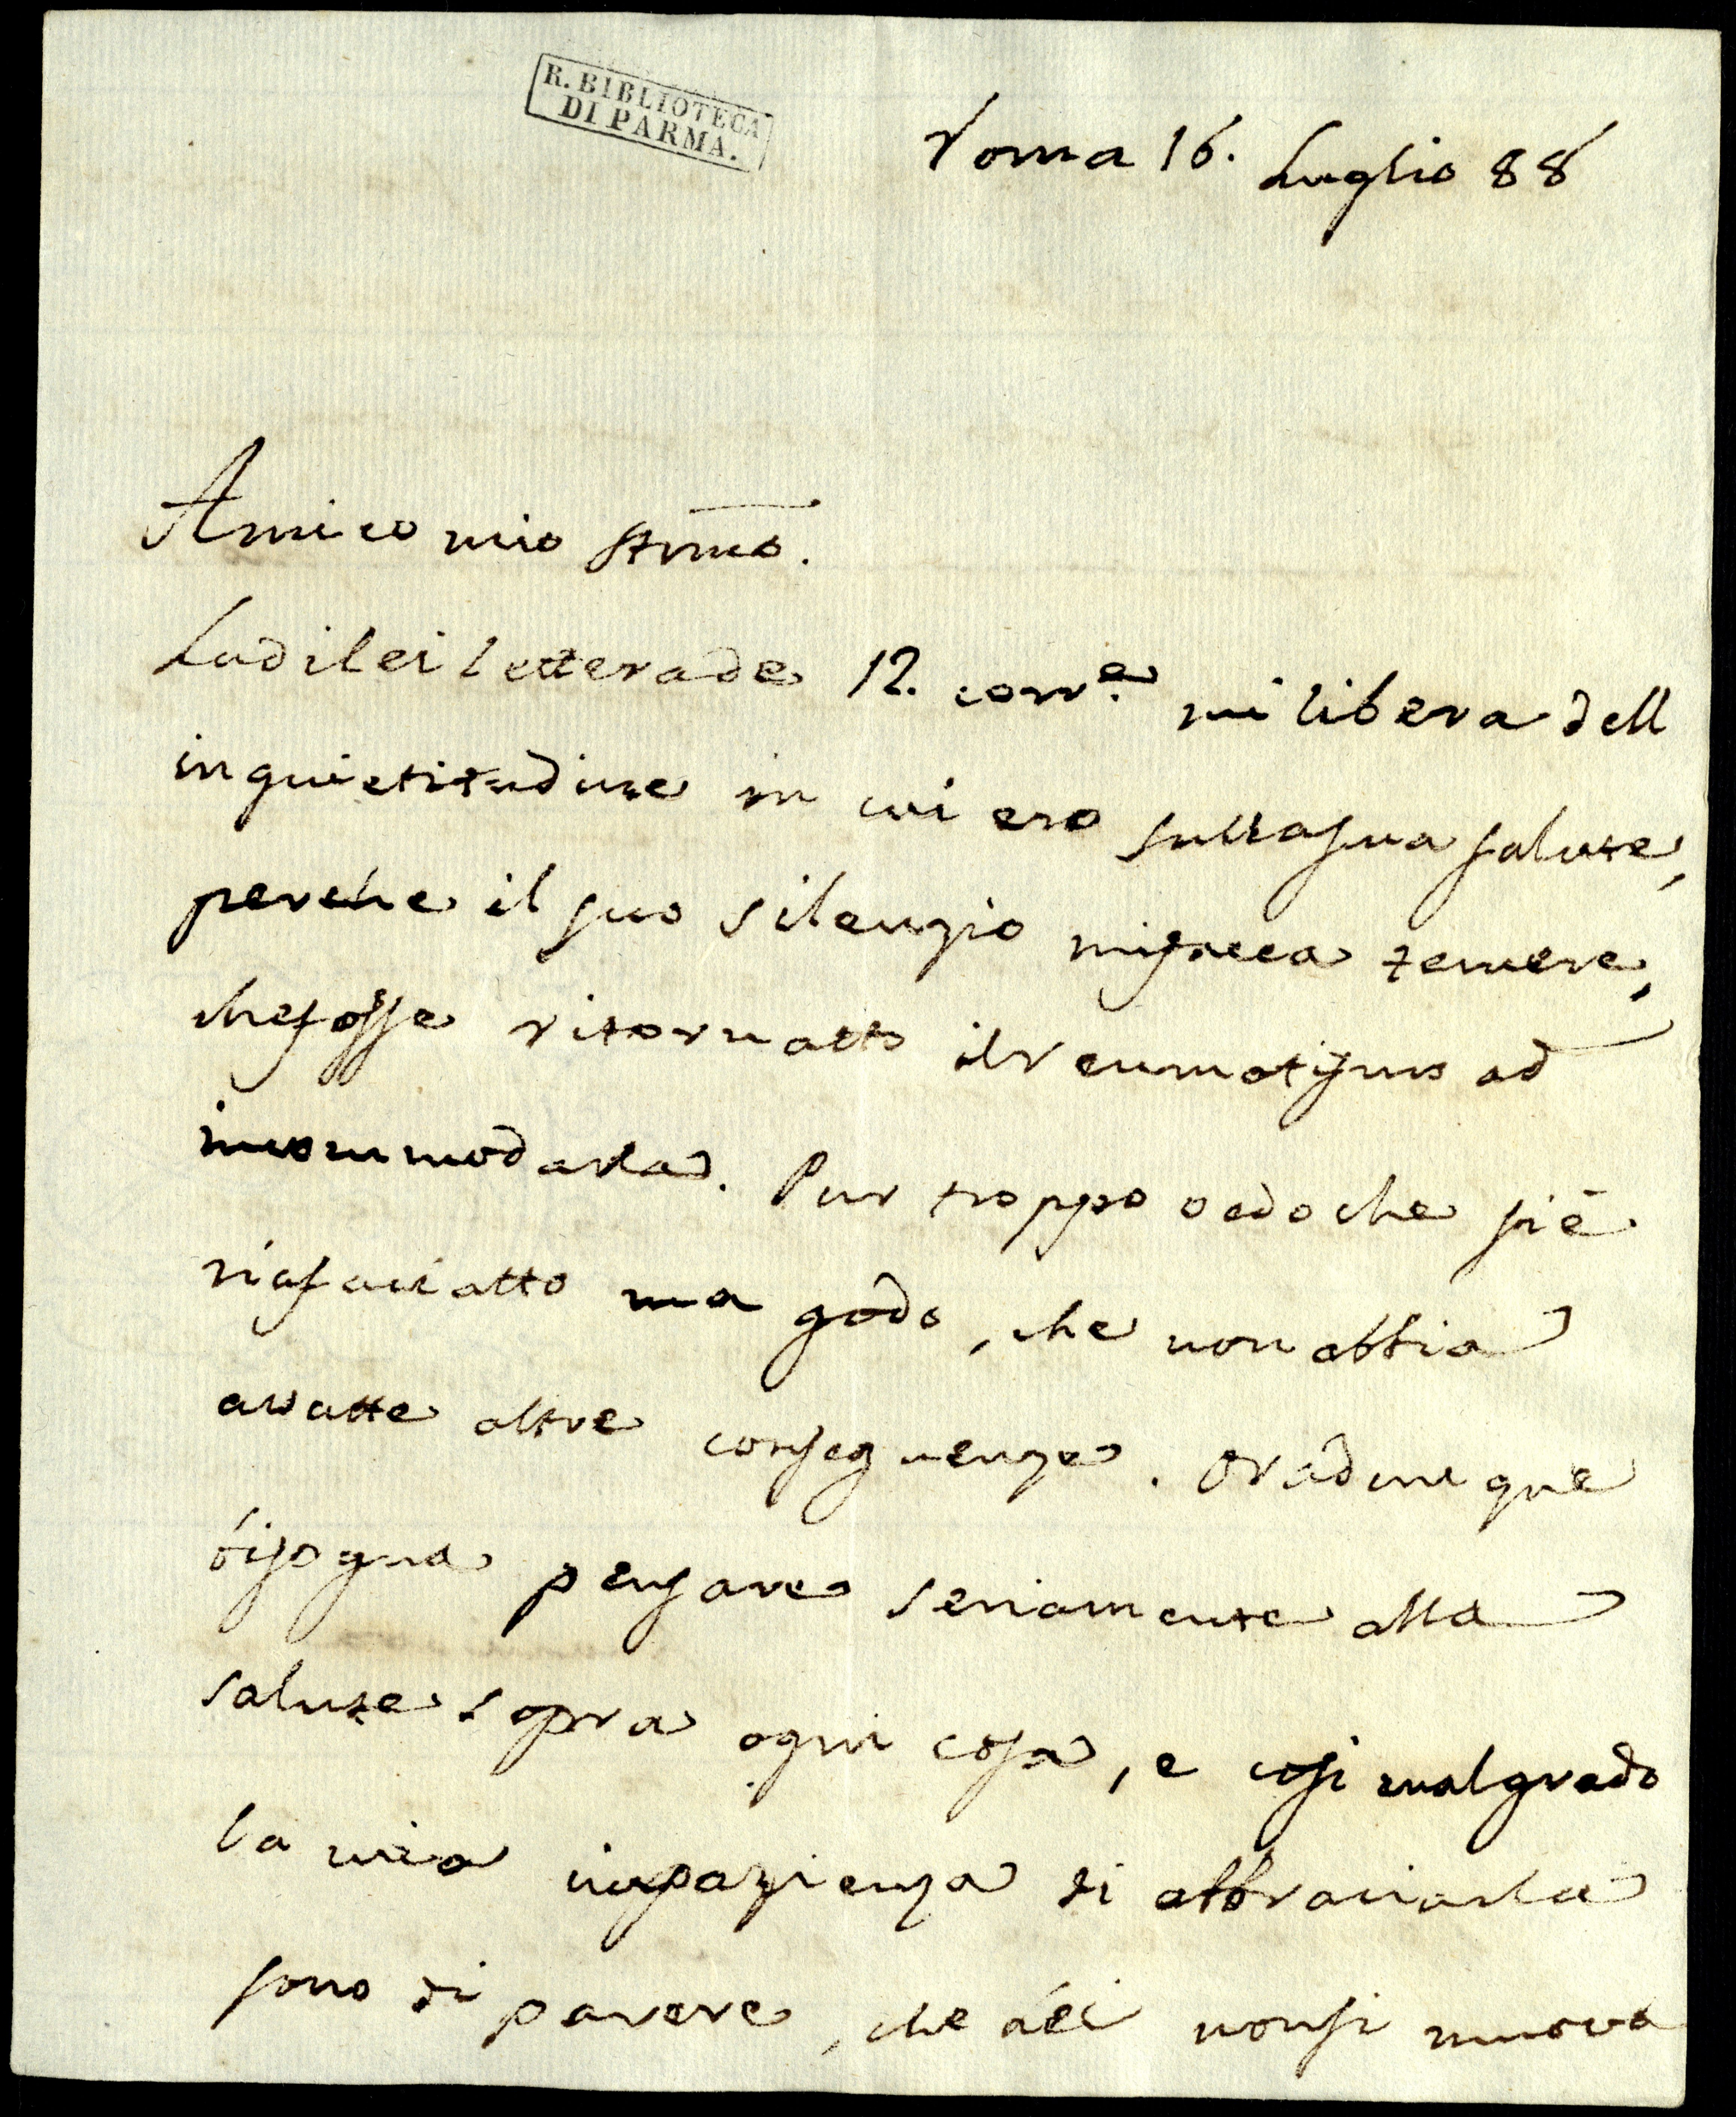 R. BIBLIOTECA
DI PARMA.
Roma 16. Luglio 88
Amico mio Stmo.
La di lei lettera de 12. corr.e mi libera dell
inquietitudine in cui ero sulla sua salute,
perche il suo silenzio mi facea temere,
che fosse ritornatto il reumatismo ad
incommodarla. Pur troppo vedo che si è
riafaciatto ma godo, che non abbia
avutte altre conseguenze. Ora dunque
bisogna pensare seriamente alla
salute sopra ogni cosa, e cosi malgrado
la mia impazienza di abbraciarla
sono di parere, che lei non si muova